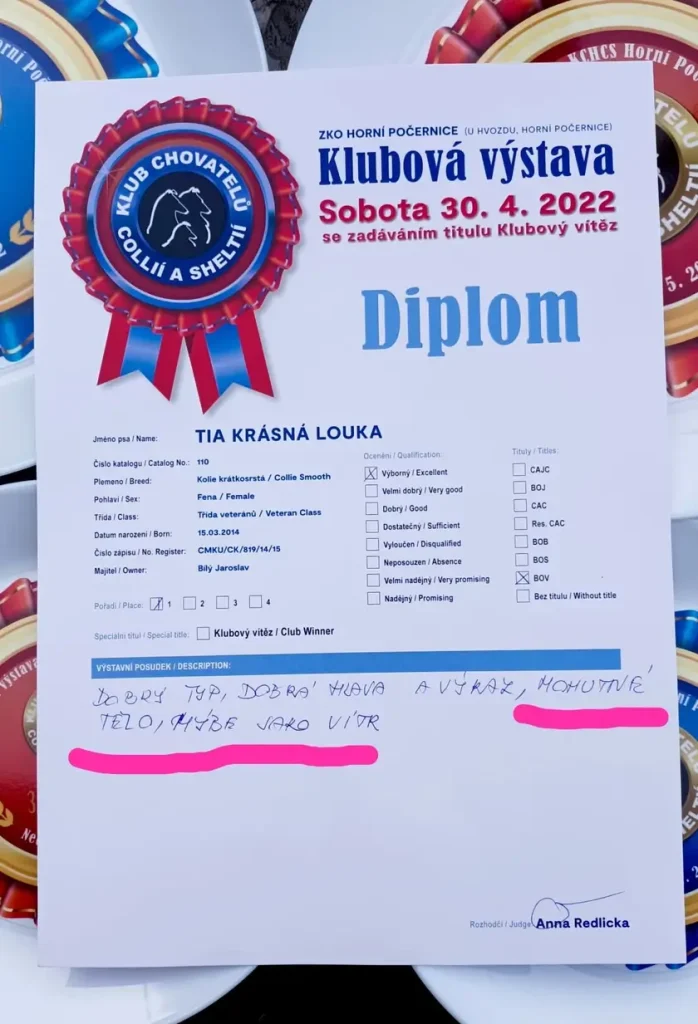 KLUB CHOVATELŮ
COLLIÍ A SHELTIÍ
ZKO HORNÍ POČERNICE (U HVOZDU, HORNÍ POČERNICE)
Klubová výstava
Sobota 30. 4. 2022
se zadáváním titulu Klubový vítěz
Diplom
Jméno psa / Name: TIA KRÁSNÁ LOUKA
Číslo katalogu / Catalog No.: 110
Plemeno / Breed: Kolie krátkosrstá / Collie Smooth
Pohlaví / Sex: Fena / Female
Třída / Class: Třída veteránů / Veteran Class
Datum narození / Born: 15.03.2014
Číslo zápisu / No. Register: CMKU/CK/819/14/15
Majitel / Owner: Bílý Jaroslav
Pořadí / Place: 1 2 3 4
Speciální titul / Special title: Klubový vítěz / Club Winner
Ocenění / Qualification:
Výborný / Excellent
Velmi dobrý / Very good
Dobrý / Good
Dostatečný / Sufficient
Vyloučen / Disqualified
Neposouzen / Absence
Velmi nadějný / Very promising
Nadějný / Promising
Tituly / Titles:
CAJC
BOJ
CAC
Res. CAC
BOB
BOS
BOV
Bez titulu / Without title
VÝSTAVNÍ POSUDEK / DESCRIPTION:
DOBRÝ TYP, DOBRÁ HLAVA A VÝRAZ, MOHUTNÉ
TĚLO, HÝBE JAKO VÍTR
Rozhodčí / Judge Anna Redlicka
KCHCS Horní